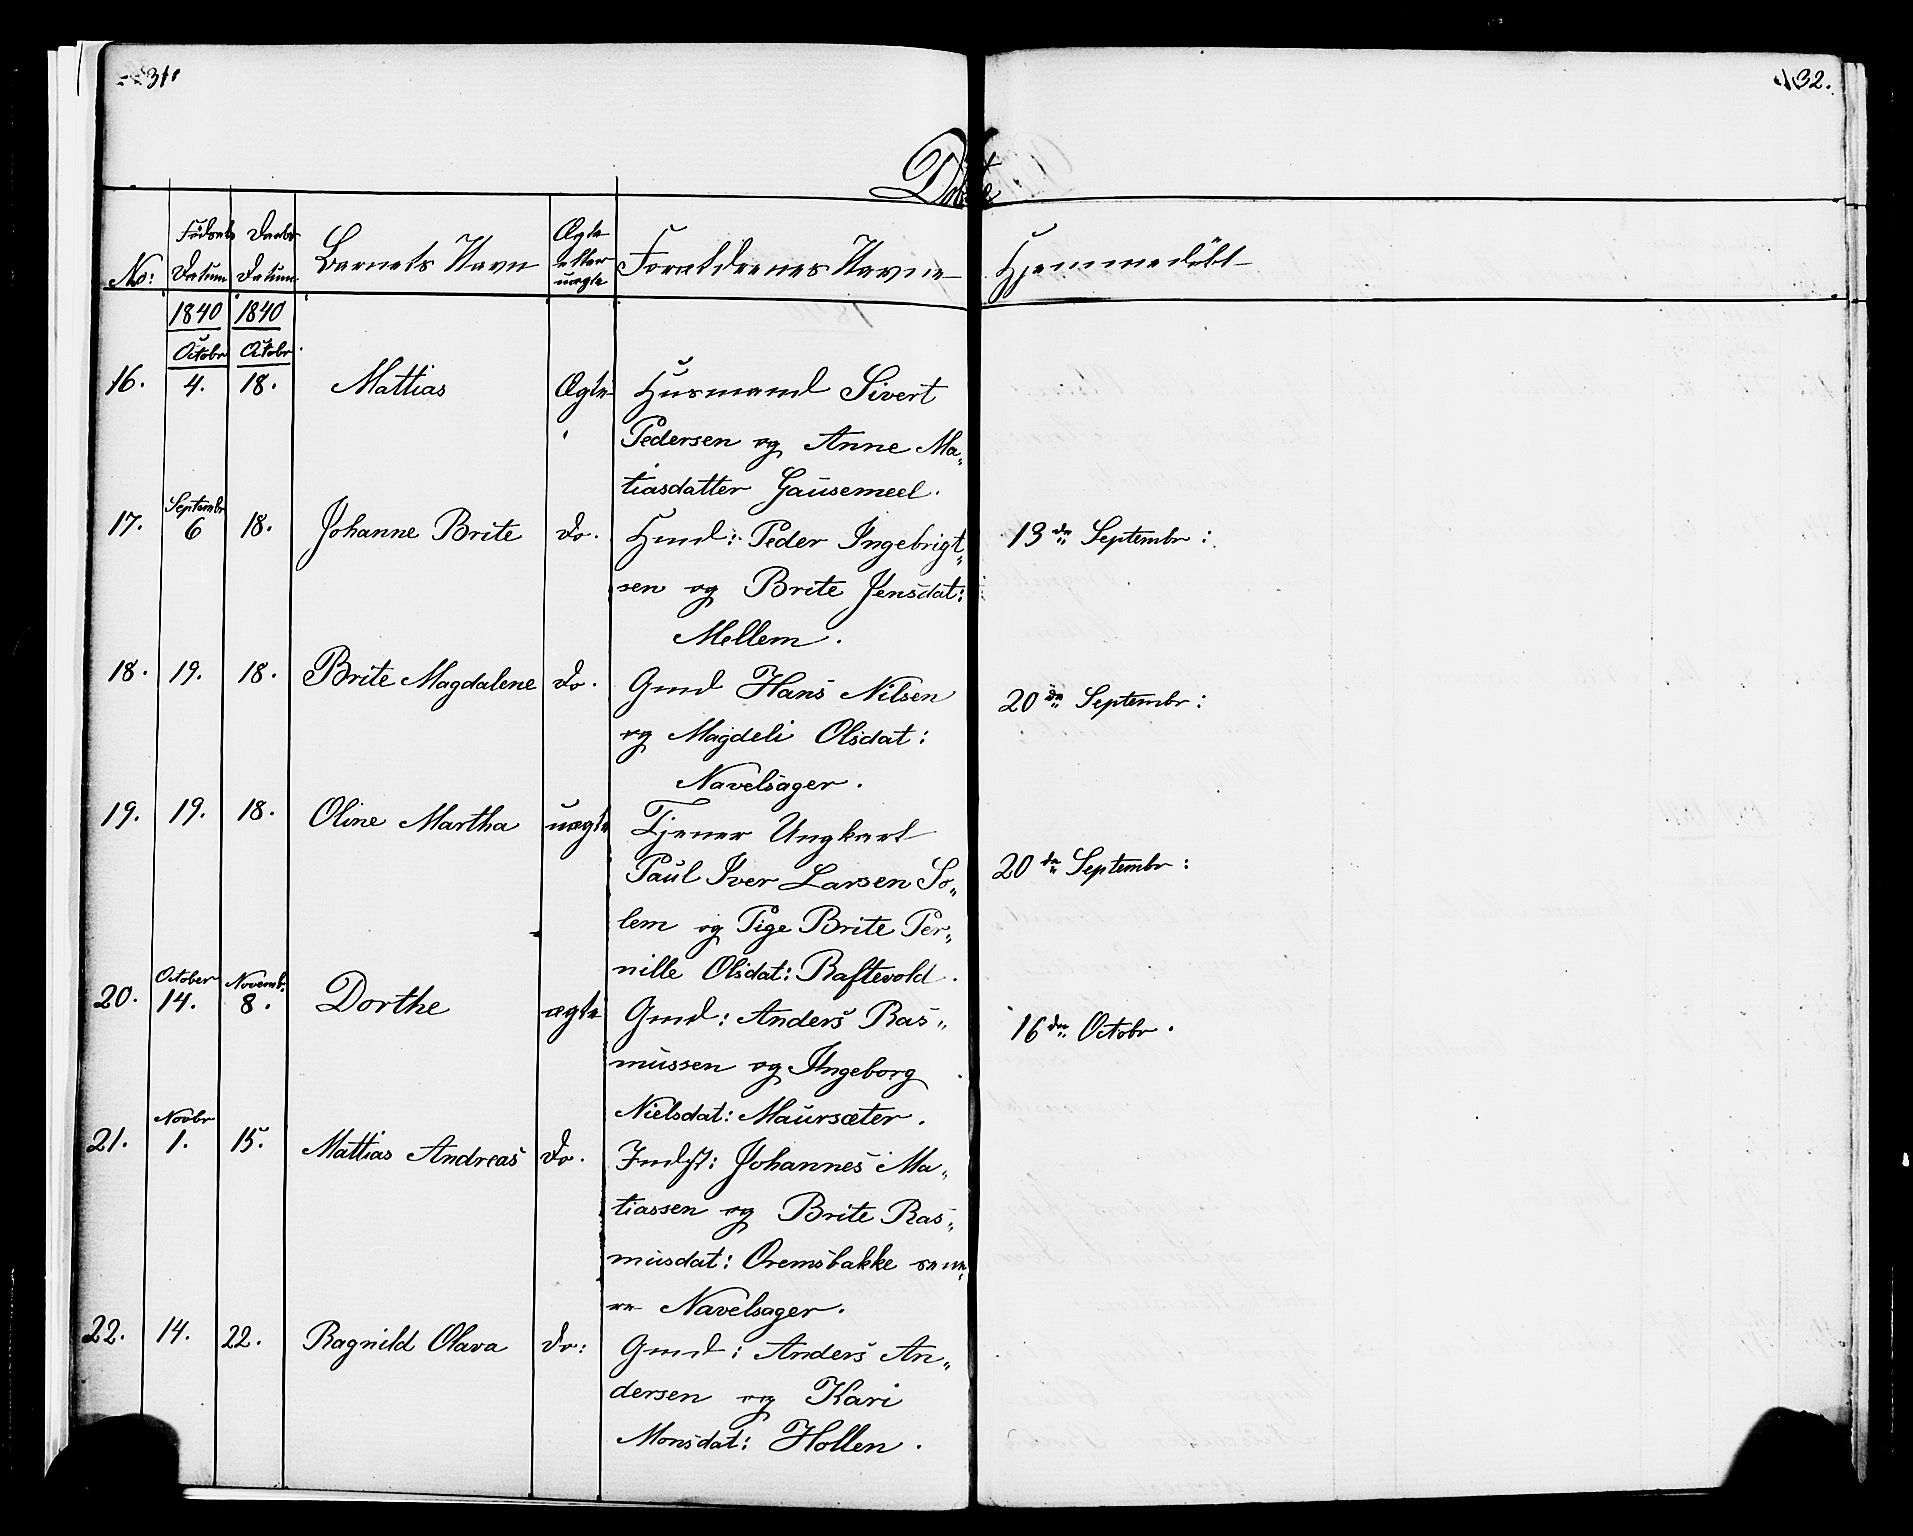 31.
32.
Døbte
Fødsels Daabs Ægte
No: Datum Datum Barnets Navn eller Forældrenes Navne Hjemmedøbt
uægte
1840 1840
Octobr Octobr.
16. 4. 18. Mattias Ægte Huusmand Sivert
Pedersen og Anne Ma„
tiasdatter Gausemeel.
17. Septembr 6 18. Johanne Brite do. Hmd: Peder Ingebrigt„ 13de Septembr:
sen og Brite Jensdat:
Mellem.
18. 19. 18. Brite Magdalene do. Gmd Hans Nilsen 20de Septembr:
og Magdeli Olsdat:
Navelsager.
19. 19. 18. Oline Martha uægte Tjener Ungkarl
Paul Iver Larsen So„ 20de Septembr:
lem og Pige Brite Per„
nille Olsdat: Raftevold.
20. October 14. Novemb: 8. Dorthe ægte Gmd: Anders Ras„ 16de Octobr.
mussen og Ingeborg
Nielsdat: Maursæter.
21. Novbr 1. 15. Mattias Andreas do. Indst: Johannes Ma„
tiassen og Brite Ras„
musdat: Oremsbakke
Navelsager.
22. 14. 22. Ragnild Olava do: Gmd: Anders An„
dersen og Kari
Monsdat: Hollen.